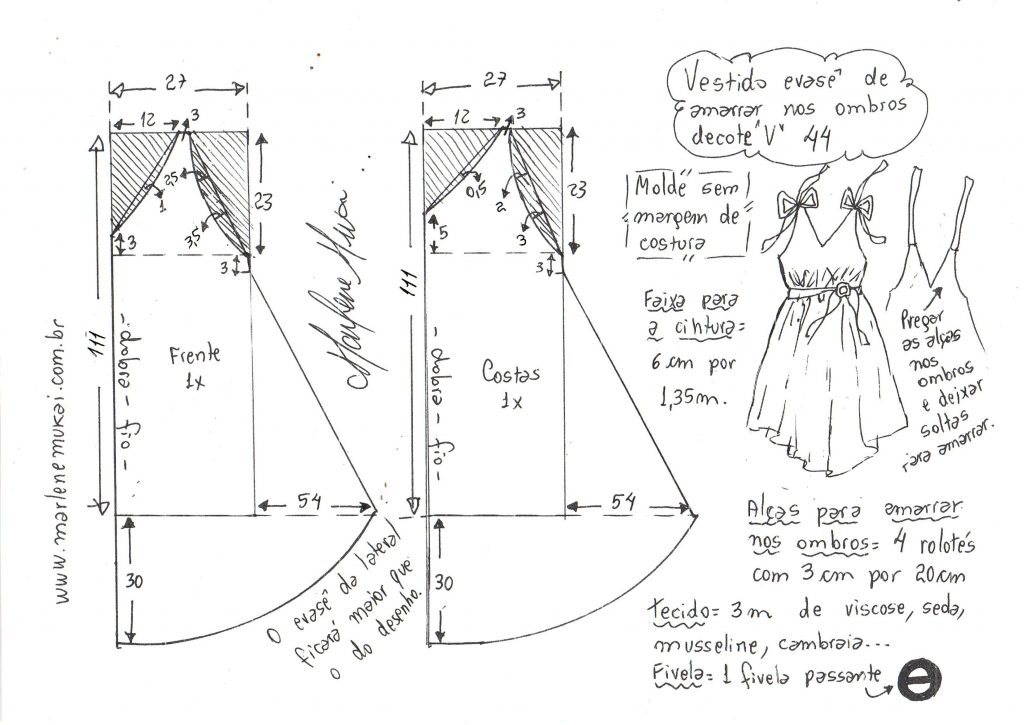 Vestido evasê de
amarrar nos ombros
decote "V" 44
Molde sem
margem de
costura
Faixa para
a cintura=
6 cm por
1,35m.
Pregar
as alças
nos
ombros
e deixar
soltas
para amarrar.
Alças para amarrar
nos ombros= 4 rolotês
com 3 cm por 20cm
Tecido= 3m de viscose, seda,
musseline, cambraia...
Fivela= 1 fivela passante
27
12
3
1
25
3,5
23
3
3
111
- dobra - fio -
Frente
1x
54
30
O evasê da lateral
ficará maior que
o do desenho.
Marlene Mukai
27
12
3
0,5
2
3
23
5
3
111
- dobra - fio -
Costas
1x
54
30
www.marlenemukai.com.br